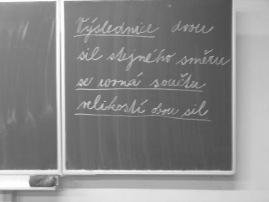 Výslednice dvou
sil stejného směru
se rovná součtu
velikostí obou sil